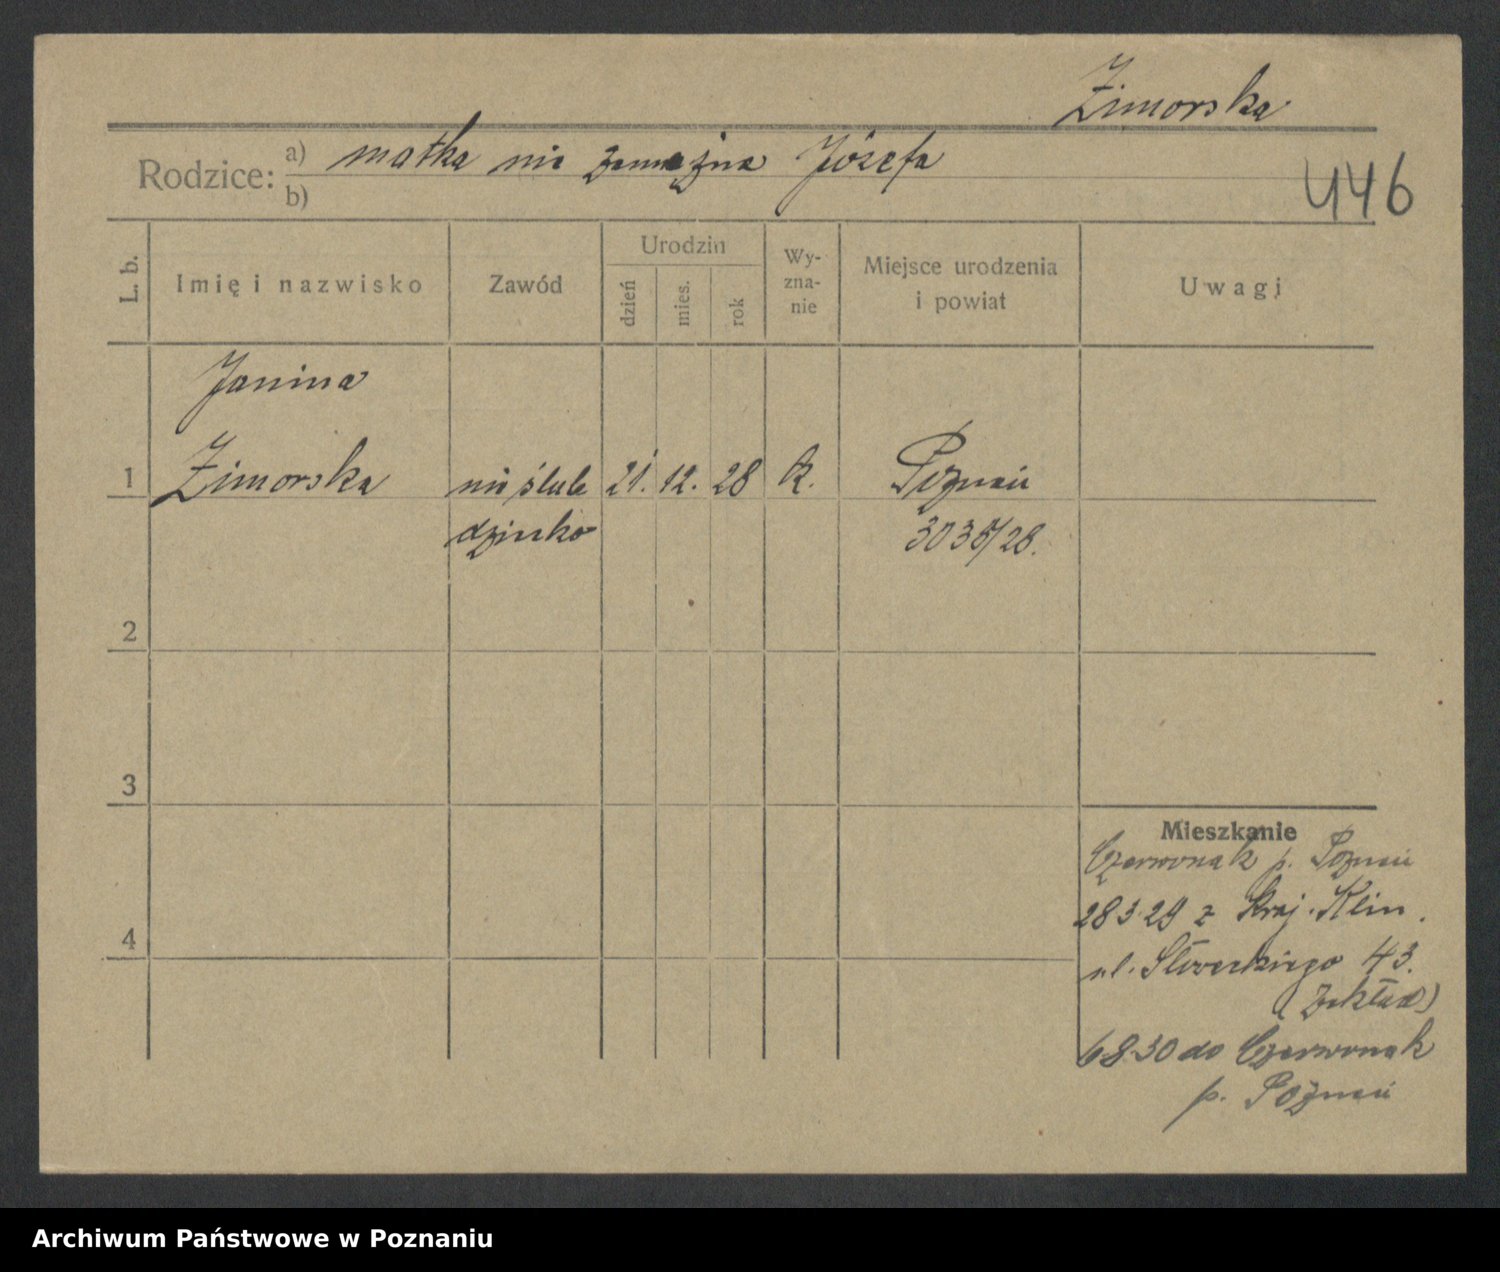 Zimorska
Rodzice: a) matka nie zamężna Józefa
b)
446
L. b. Imię i nazwisko Zawód Urodzin dzień mies. rok Wy-zna-nie Miejsce urodzenia i powiat Uwagi
Janina
1 Zimorska nie ślub 21. 12. 28 k. Poznań
dziecko 3035/28.
2
3
Mieszkanie
Czerwonak p. Poznań
28 3 29 z Kraj. Klin.
4
ul. Słoweckiego 43.
(zakład)
6 8 30 do Czerwonak
p. Poznań
Archiwum Państwowe w Poznaniu